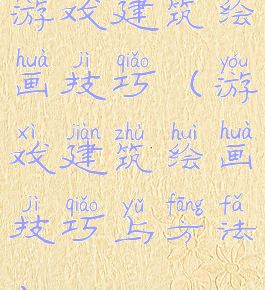 游戏建筑绘
huà jì qiǎo yóu
画技巧(游
xì jiàn zhù huì huà
戏建筑绘画
jì qiǎo yǔ fāng fǎ
技巧与方法
)